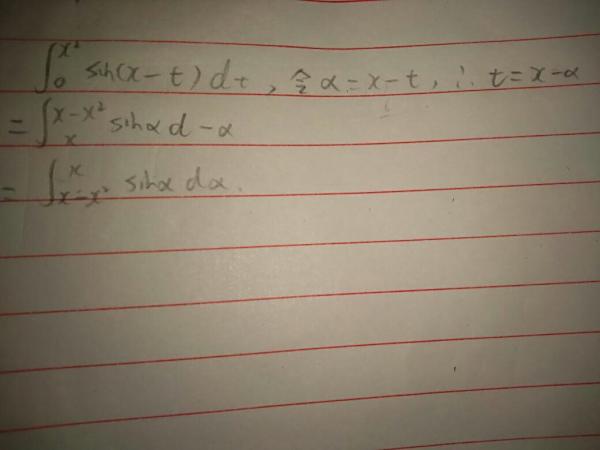 ∫₀^{x²} sin(x-t) dt, 令 α=x-t, ∴ t=x-α
= ∫ₓ^{x-x²} sinα d-α
= ∫_{x-x²}^{x} sinα dα.